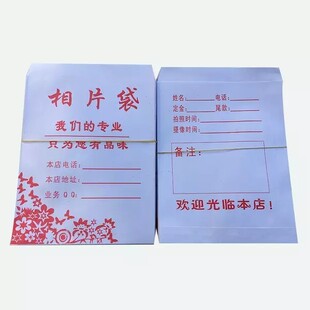 相片袋
我们的专业
只为您有品味
本店电话：
本店地址：
业务QQ：
姓名： 电话：
定金： 尾款：
拍照时间：
摄像时间：
备注：
欢迎光临本店！